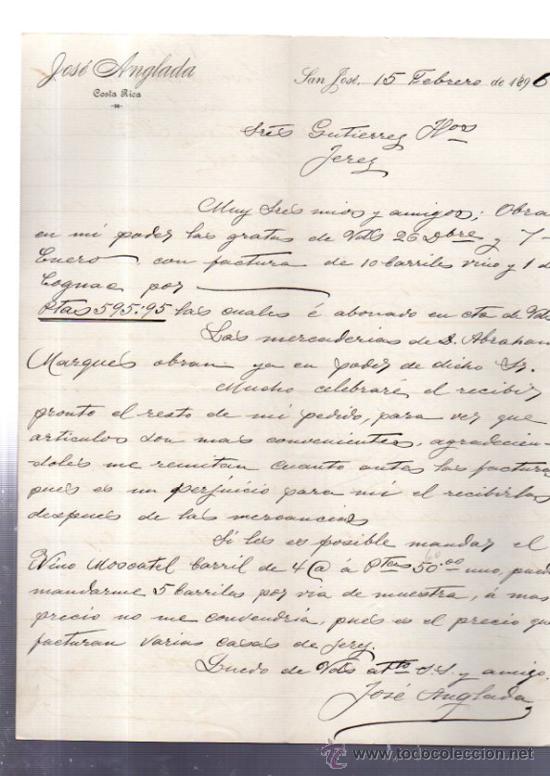 José Anglada
Costa Rica
San José, 15 Febrero de 1896
Srés Gutierrez Hos
Jerez
Muy Srés mios y amigos; Obra
en mi poder las gratas de Vds 26 Dbre y 7-
Enero, con factura de 10 barriles vino y 1 de
Cognac por
Ptas 595:95 las cuales é abonado en cta de Vds
Las mercaderias de D. Abraham
Marqués obran ya en poder de dicho Sr.
Mucho celebraré el recibir
pronto el resto de mi pedido, para ver que
articulos son mas convenientes, agradecien
doles me remitan cuanto antes las factura
pués es un perjuicio para mi el recibirlas
después de las mercancias
Si les es posible mandar el
Vino Moscatel barril de 4 @ a Ptas 50.00 uno, pued
mandarme 5 barriles por via de muestra, á mas
precio no me convendria, pués es el precio que
facturan varias casas de Jerez.
Quedo de Vds atto S.S. y amigo.
José Anglada
www.todocoleccion.net